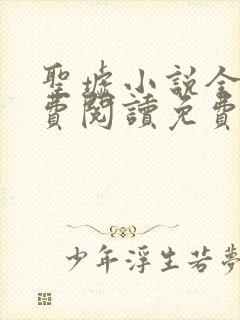 聖墟小說全
費閱讀免費
少年浮生若夢